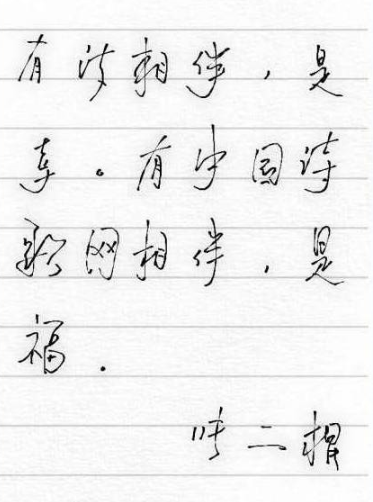 有诗相伴，是
幸。有中国诗
歌网相伴，是
福.
吁二楣